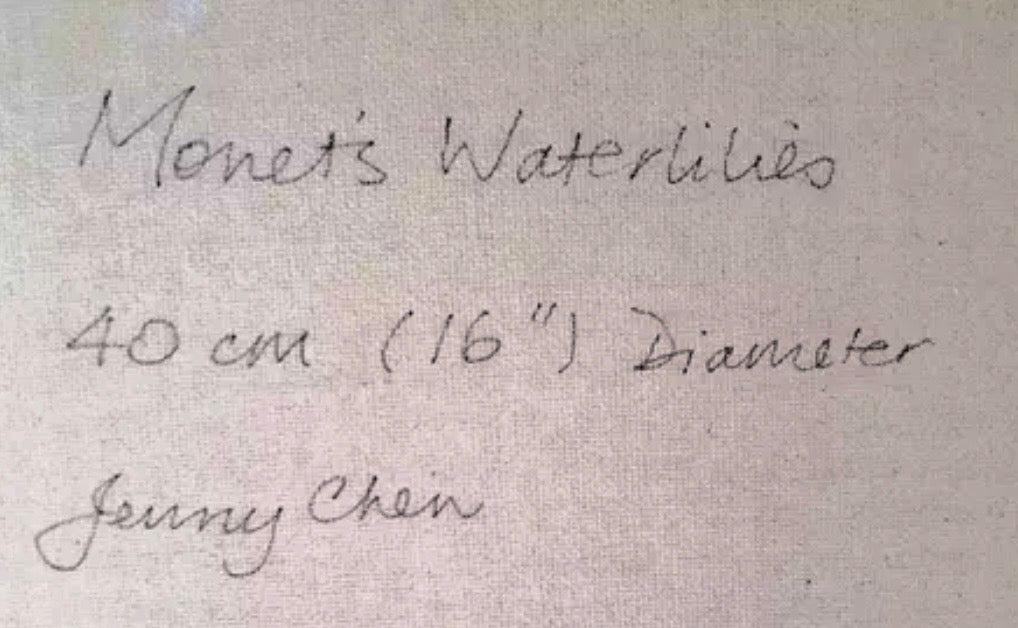 Monet's Waterlilies
40 cm (16") Diameter
Jenny Chen